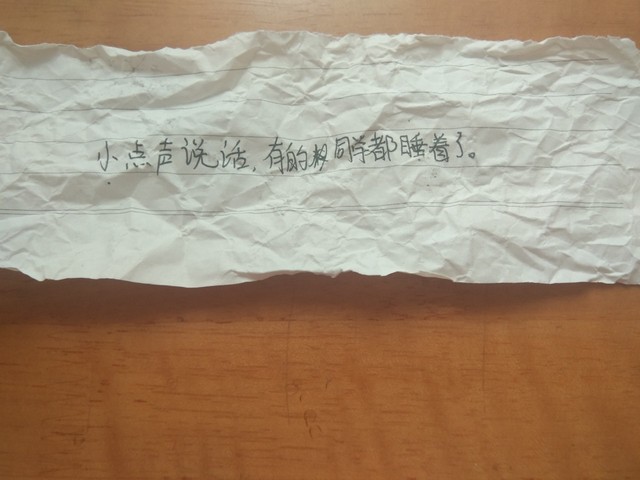 小点声说话，有的同学都睡着了。